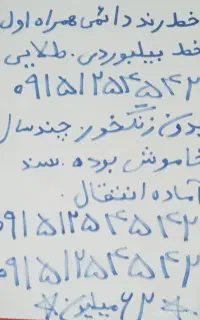 خط رند دائمی همراه اول
خط بیلبوردی. طلایی
۰۹۱۵۱۲۵۴۵۴۳
بدون زنگخور. چند سال
خاموش بوده. سند
آماده انتقال.
۰۹۱۵۱۲۵۴۵۴۳
۰۹۱۵۱۲۵۴۵۴۳
* ۶۳ میلیون *